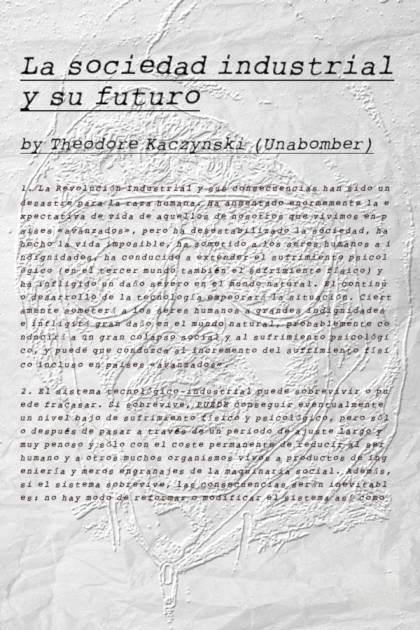 La sociedad industrial
y su futuro
by Theodore Kaczynski (Unabomber)
1. La Revolución Industrial y sus consecuencias han sido un
desastre para la raza humana. Ha aumentado enormemente la e
xpectativa de vida de aquellos de nosotros que vivimos en p
aíses «avanzados», pero ha desestabilizado la sociedad, ha
hecho la vida imposible, ha sometido a los seres humanos a i
ndignidades, ha conducido a extender el sufrimiento psicol
ógico (en el tercer mundo también el sufrimiento físico) y
ha infligido un daño severo en el mundo natural. El continu
o desarrollo de la tecnología empeorará la situación. Ciert
amente someterá a los seres humanos a grandes indignidades
e infligirá gran daño en el mundo natural, probablemente co
nducirá a un gran colapso social y al sufrimiento psicológi
co, y puede que conduzca al incremento del sufrimiento físi
co incluso en países «avanzados».
2. El sistema tecnológico-industrial puede sobrevivir o pu
ede fracasar. Si sobrevive, PUEDE conseguir eventualmente
un nivel bajo de sufrimiento físico y psicológico, pero sól
o después de pasar a través de un periodo de ajuste largo y
muy penoso y sólo con el coste permanente de reducir al ser
humano y a otros muchos organismos vivos a productos de ing
eniería y meros engranajes de la maquinaria social. Además,
si el sistema sobrevive, las consecuencias serán inevitabl
es: no hay modo de reformar o modificar el sistema así como